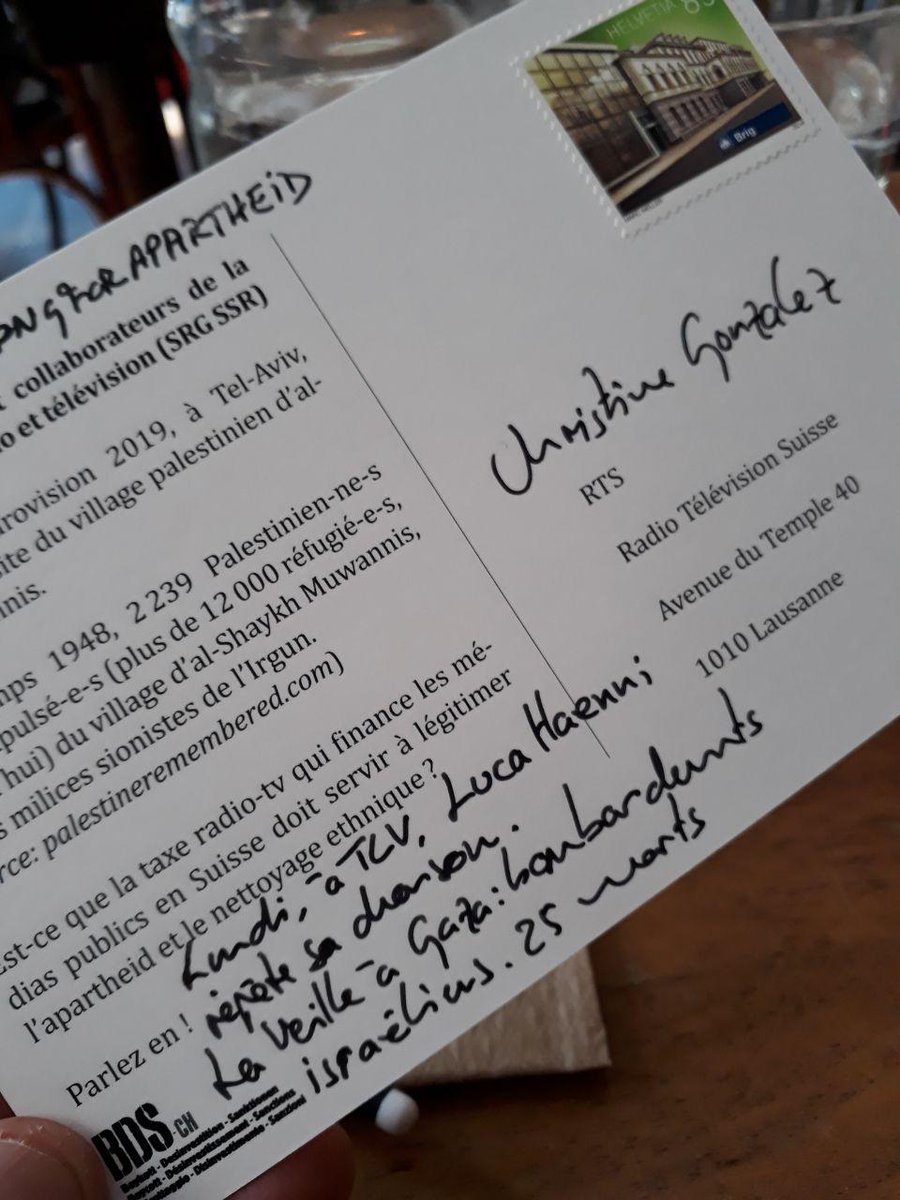 FOR APARTHEID
collaborateurs de la
o et télévision (SRG SSR)
rovision 2019, à Tel-Aviv,
ite du village palestinien d'al-
nnis.
mps 1948, 2 239 Palestinien-ne-s
pulsé-e-s (plus de 12 000 réfugié-e-s,
hui) du village d'al-Shaykh Muwannis,
s milices sionistes de l'Irgun.
rce: palestineremembered.com)
Est-ce que la taxe radio-tv qui finance les mé-
dias publics en Suisse doit servir à légitimer
l'apartheid et le nettoyage ethnique ?
Parlez en !
Lundi, à TLV, Luca Haenni
répète sa chanson.
La veille à Gaza: bombardemts
israéliens. 25 morts
BDS-CH
HELVETIA 85
Brig
Christine Gonzalez
RTS
Radio Télévision Suisse
Avenue du Temple 40
1010 Lausanne